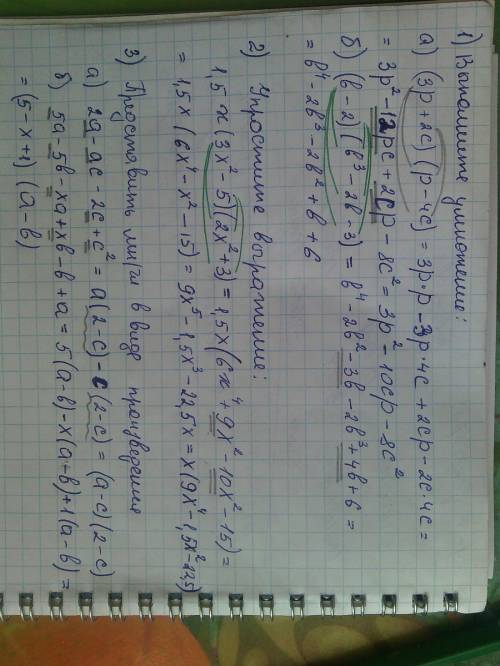 1) Выполните умножение:
а) (3p+2c)(p-4c) = 3p·p - 3p·4c + 2cp - 2c·4c =
= 3p² - 12pc + 2cp - 8c² = 3p² - 10cp - 8c²
б) (b-2)(b³-2b-3) = b⁴ - 2b² - 3b - 2b³ + 4b + 6 =
= b⁴ - 2b³ - 2b² + b + 6
2) Упростите выражение:
1,5x(3x²-5)(2x²+3) = 1,5x(6x⁴ + 9x² - 10x² - 15) =
= 1,5x(6x⁴ - x² - 15) = 9x⁵ - 1,5x³ - 22,5x = x(9x⁴ - 1,5x² - 22,5)
3) Представить мн-ги в виде произведения
а) 2a - ac - 2c + c² = a(2-c) - c(2-c) = (a-c)(2-c)
б) 5a - 5b - xa + xb - b + a = 5(a-b) - x(a-b) + 1(a-b) =
= (5-x+1)(a-b)